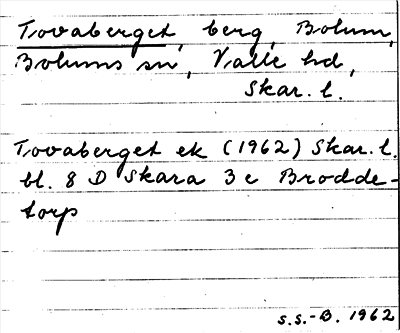 Tovaberget, berg, Bolum,
Bolums sn, Valle hd,
Skar. l.
Tovaberget ek (1962) Skar. l.
bl. 8 D Skara 3 e Brodde-
torp
s.s.-B. 1962